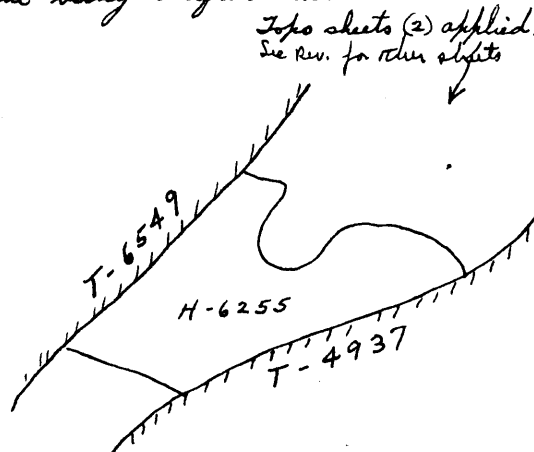 being
Topo sheets (2) applied.
See Rev. for other sheets
T-6549
H-6255
T-4937